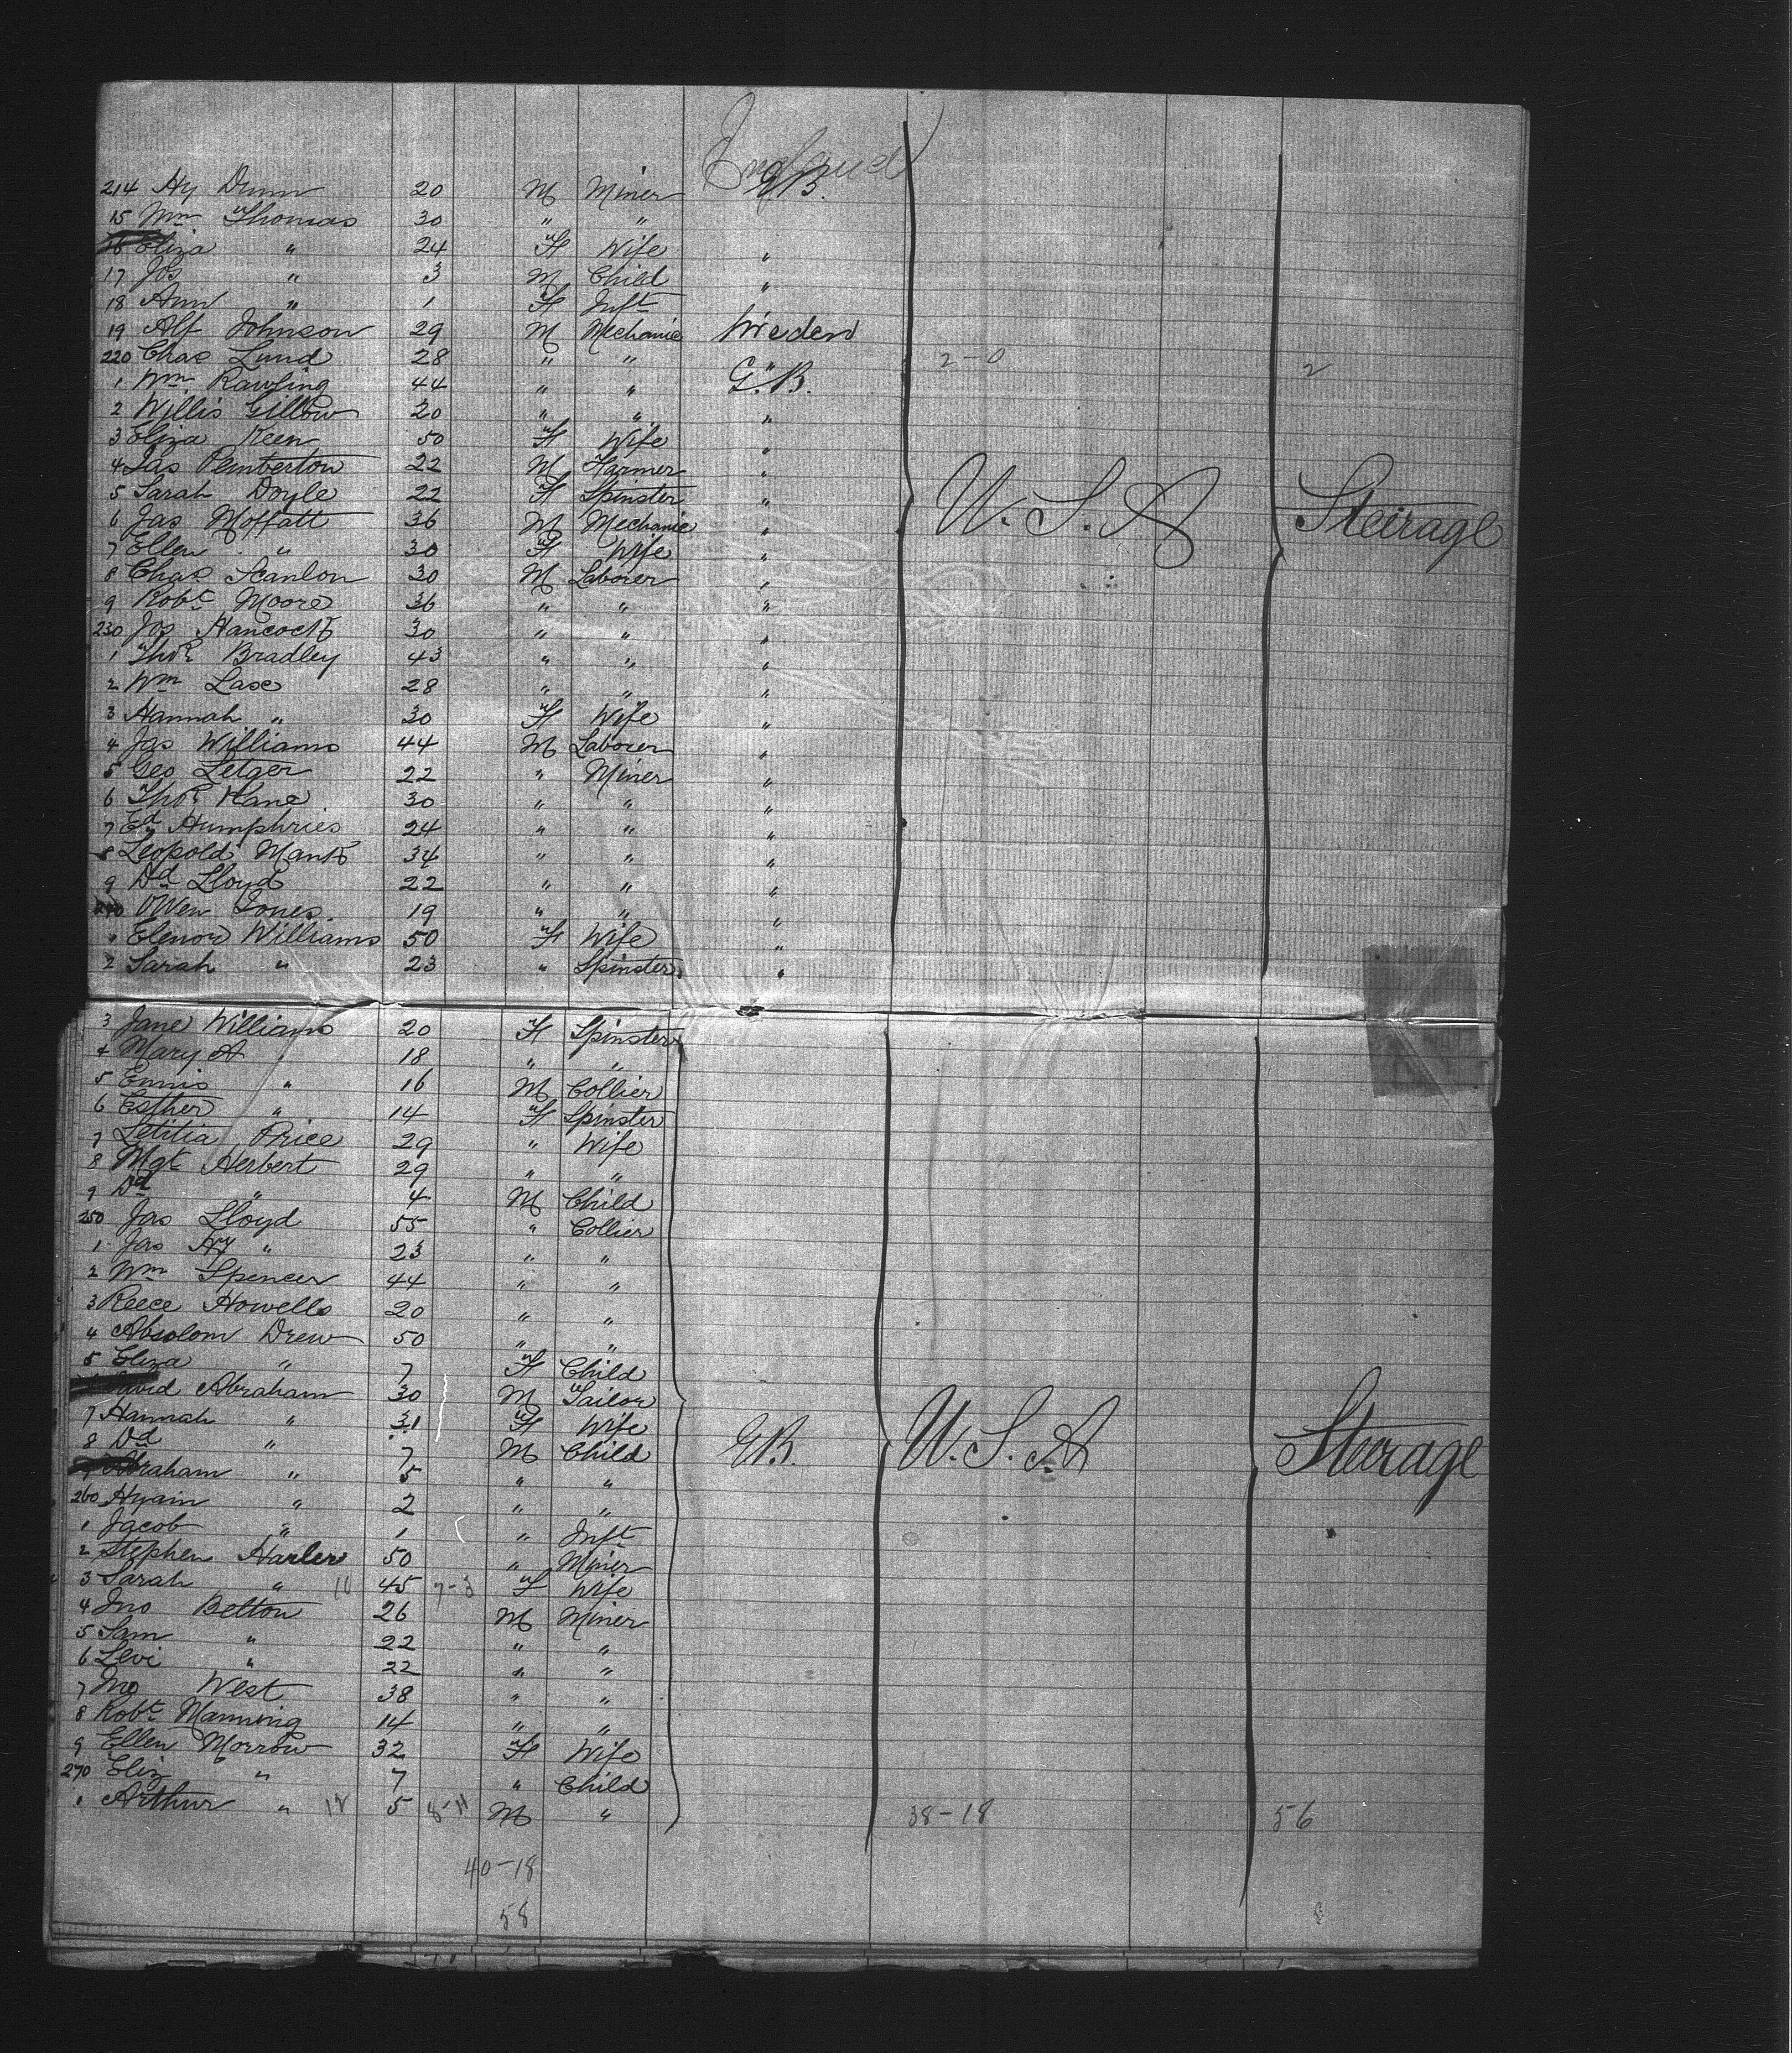 England
214 Hy Dunn 20 M Miner G.B.
15 Wm Thomas 30 " "
16 Eliza " 24 F Wife "
17 Jos " 3 M Child "
18 Ann " 1 F Inft "
19 Alf Johnson 29 M Mechanic Sweden
220 Chas Lund 28 " " " 2-0 2
1 Wm Rawling 44 " " G.B.
2 Willis Gillow 20 " " "
3 Eliza Keen 50 F Wife "
4 Jas Pemberton 22 M Farmer "
5 Sarah Doyle 22 F Spinster " U.S.A Steerage
6 Jas Moffatt 36 M Mechanic "
7 Ellen " 30 F Wife "
8 Chas Scanlon 30 M Laborer "
9 Robt Moore 36 " " "
230 Jos Hancock 30 " " "
1 Thos Bradley 43 " " "
2 Wm Lase 28 " " "
3 Hannah " 30 F Wife "
4 Jas Williams 44 M Laborer "
5 Geo Letger 22 " Miner "
6 Thos Kane 30 " " "
7 Ed Humphries 24 " " "
8 Leopold Mank 34 " " "
9 Dd Lloyd 22 " " "
240 Owen Jones 19 " " "
Elenor Williams 50 F Wife "
2 Sarah " 23 " Spinster "
3 Jane Williams 20 F Spinster
4 Mary A " 18 " "
5 Ennis " 16 M Collier
6 Esther " 14 F Spinster
7 Letitia Price 29 " Wife
8 Mgt Herbert 29 " "
9 Dd " 4 M Child
250 Jas Lloyd 55 " Collier
1 Jas Hy " 23 " "
2 Wm Spencer 44 " "
3 Reece Howells 20 " "
4 Absolom Drew 50 " "
5 Eliza " 7 F Child
David Abraham 30 M Tailor
7 Hannah " 31 F Wife
8 Dd " 7 M Child G.B. U.S.A Steerage
Abraham " 5 " "
260 Hyam " 2 " "
1 Jacob " 1 " Inft
2 Stephen Harler 50 " Miner
3 Sarah " 10 45 7-3 F Wife
4 Jno Belton 26 M Miner
5 Sam " 22 " "
6 Levi " 22 " "
7 Jno West 38 " "
8 Robt Manning 14 " "
9 Ellen Morrow 32 F Wife
270 Eliz " 7 " Child
1 Arthur " 5 M " 38-18 56
40-18
58